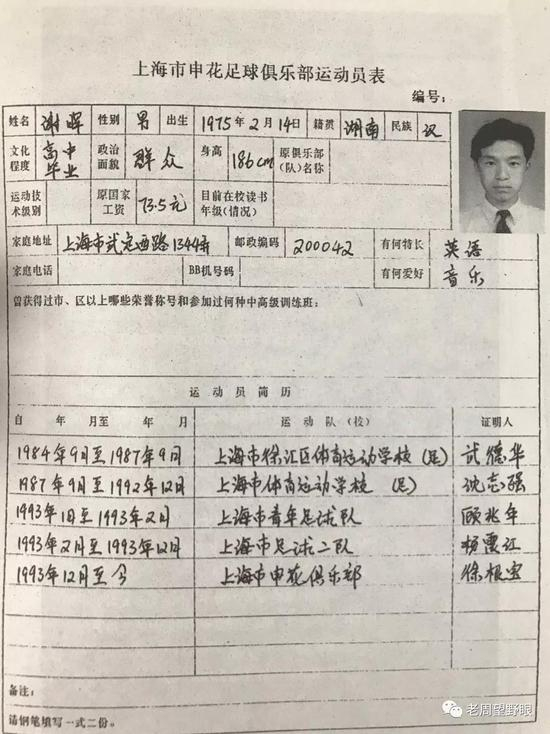 上海市申花足球俱乐部运动员表
编号：
姓名 谢晖 性别 男 出生 1975年2月14日 籍贯 湖南 民族 汉
文化程度 高中毕业 政治面貌 群众 身高 186cm 原俱乐部(队)名称
运动技术级别 原国家工资 73.5元 目前在校读书年级(情况)
家庭地址 上海市武定西路1344弄 邮政编码 200042 有何特长 英语
家庭电话 BB机号码 有何爱好 音乐
曾获得过市、区以上哪些荣誉称号和参加过何种中高级训练班：
运动员简历
自 年 月至 年 月 运动队(校) 证明人
1984年9月至1987年9月 上海市徐汇区体育运动学校(足) 武德华
1987年9月至1992年12月 上海市体育运动学校(足) 沈志强
1993年1月至1993年2月 上海市青年足球队 顾兆年
1993年2月至1993年12月 上海市足球二队 杨霞江
1993年12月至今 上海市申花俱乐部 徐根宝
备注：
请钢笔填写一式二份。
老周望野眼